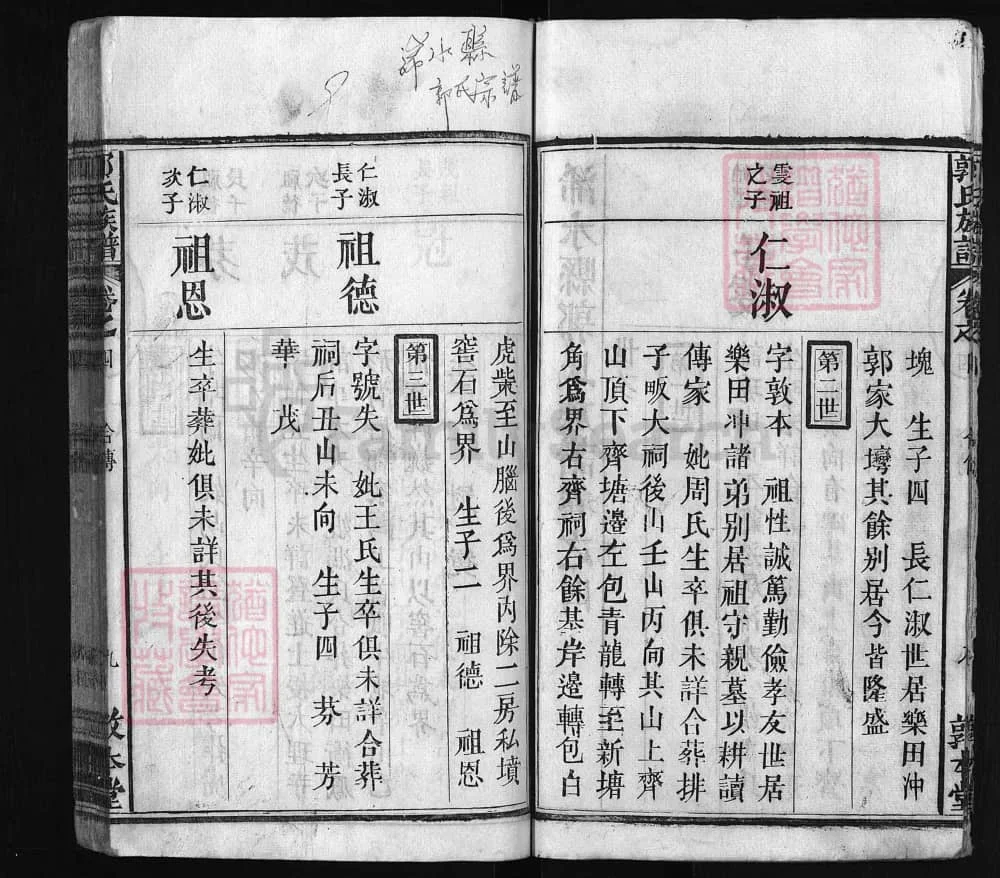 浠水縣
郭氏宗譜
郭氏族譜
塊 生子四 長仁淑世居樂田冲
郭家大塆其餘別居今皆隆盛
第二世
雯祖之子
仁淑
字敦本 祖性誠篤勤儉孝友世居
樂田冲諸弟別居祖守親墓以耕讀
傳家 妣周氏生卒俱未詳合葬排
子畈大祠後山壬山丙向其山上齊
山頂下齊塘邊左包青龍轉至新塘
角爲界右齊祠右餘基岸邊轉包白
虎柴至山腦後爲界內除二房私墳
窖石爲界 生子二 祖德 祖恩
第三世
仁淑長子
祖德
字號失 妣王氏生卒俱未詳合葬
祠后丑山未向 生子四 芬 芳
華 茂
仁淑次子
祖恩
生卒葬妣俱未詳其後失考
郭氏族譜 卷之四 合傳 九 敦本堂